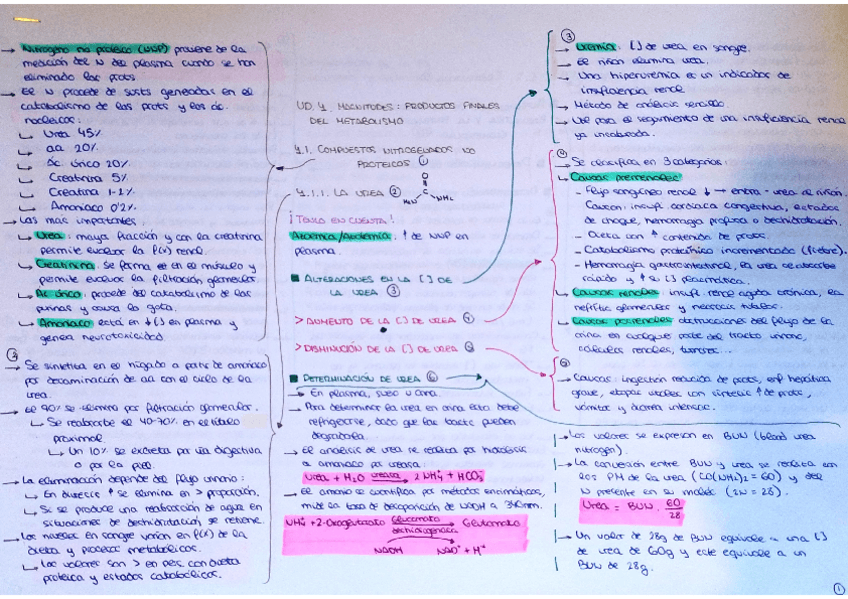 → Nitrógeno no proteico (NNP) proviene de la
medición del N del plasma cuando se han
eliminado las prots.
→ El N procede de susts generadas en el
catabolismo de las prots y los ác.
nucleicos:
↳ Urea 45%
↳ aa 20%
↳ ác. úrico 20%
↳ Creatinina 5%
↳ Creatina 1-2%
↳ Amoniaco 0'2%
→ Las mas importantes:
↳ Urea: mayor fracción y con la creatinina
permite evaluar la f(x) renal.
↳ Creatinina: se forma en el músculo y
permite evaluar la filtración glomerular.
↳ Ac. úrico: procede del catabolismo de las
purinas y causa la gota.
↳ Amoniaco: está en ↓[] en plasma y
genera neurotoxicidad.
②
→ Se sintetiza en el hígado a partir de amoniaco
por desaminación de aa con el ciclo de la
urea.
→ El 90% se elimina por filtración glomerular.
↳ Se reabsorbe el 40-70% en el túbulo
proximal.
↳ Un 10% se excreta por vía digestiva
o por la piel.
→ La eliminación depende del flujo urinario:
↳ En diuresis ↑ se elimina en > proporción.
↳ Si se produce una reabsorción de agua en
situaciones de deshidratación se retiene.
→ Los niveles en sangre varían en f(x) de la
dieta y procesos metabólicos.
↳ Los valores son > en pers. con dieta
proteica y estados catabólicos.
UD.4. MAGNITUDES: PRODUCTOS FINALES
DEL METABOLISMO
4.1. COMPUESTOS NITROGENADOS NO
PROTEICOS ①
4.1.1. LA UREA ②
O
H₂N C NH₂
¡TENLO EN CUENTA!
Azoemia/Azotemia: ↑ de NNP en
plasma.
■ ALTERACIONES EN LA [] DE
LA UREA ③
> AUMENTO DE LA [] DE UREA ④
> DISMINUCIÓN DE LA [] DE UREA ⑤
■ DETERMINACIÓN DE UREA ⑥
→ En plasma, suero u orina.
→ Para determinar la urea en orina esta debe
refrigerarse, dado que las bacts pueden
degradarla.
→ El análisis de urea se realiza por hidrólisis
a amoniaco por ureasa:
Urea + H₂O ureasa → 2 NH₄⁺ + HCO₃
→ El amonio se cuantifica por métodos enzimáticos,
mide la tasa de desaparición de NADH a 340nm.
NH₄⁺ + 2-Oxoglutarato Glutamato deshidrogenasa → Glutamato
NADH NAD⁺ + H⁺
③
→ Uremia: [] de urea en sangre.
→ El riñón elimina urea.
→ Una hiperuremia es un indicador de
insuficiencia renal.
→ Método de análisis sencillo.
→ Útil para el seguimiento de una insuficiencia renal
ya instaurada.
④
→ Se clasifica en 3 categorías:
→ Causas prerrenales:
- Flujo sanguíneo renal ↓ → entra - urea al riñón.
Causan: insuf. cardiaca congestiva, estados
de choque, hemorragia profusa o deshidratación.
- Dieta con ↑ contenido de prots.
- Catabolismo proteínico incrementado (fiebre).
- Hemorragia gastrointestinal, la urea se absorbe
rciado y ↑ su [] plasmática.
→ Causas renales: insuf. renal aguda crónica, la
nefritis glomerular y necrosis tubular.
→ Causas posrenales: obstrucciones del flujo de la
orina en cualquier parte del tracto urinario,
cálculos renales, tumores...
⑤
→ Causas: ingestión reducida de prots, enf hepática
grave, etapas vitales con síntesis ↑ de prots,
vómitos y diarrea intensas.
→ Los valores se expresan en BUN (blood urea
nitrogen).
→ La conversión entre BUN y urea se realiza con
los PM de la urea (CO(NH₂)₂ = 60) y del
N presente en su molec (2N = 28).
Urea = BUN · 60/28
→ Un valor de 28g de BUN equivale a una []
de urea de 60g y este equivale a un
BUN de 28g.
①